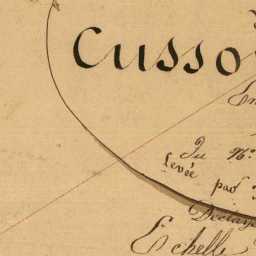 Cusso
En
Du N.
Levée
par
Echelle